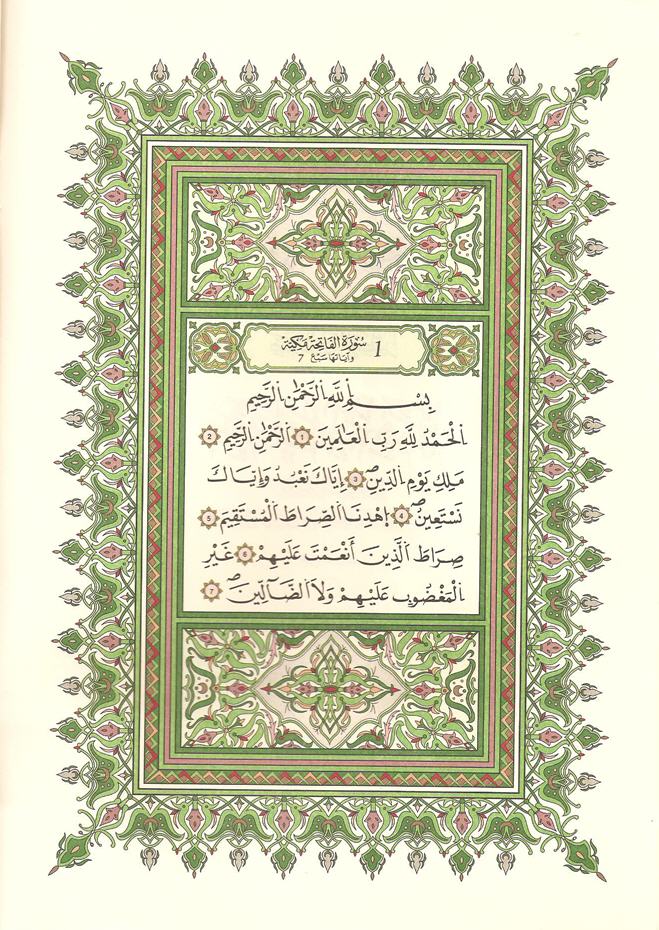 1 سُورَةُ الفَاتِحَةِ مَكِّيَّة
وَآيَاتُهَا سَبْعٌ 7
بِسْمِ اِللَّهِ اِلرَّحْمَٰنِ اِلرَّحِيمِ
اَلْحَمْدُ لِلهِ رَبِّ اِلْعَٰلَمِينَ 1 اَلرَّحْمَٰنِ اِلرَّحِيمِ 2
مَلِكِ يَوْمِ اِلدِّينِۖ 3 إِيَّاكَ نَعْبُدُ وَإِيَّاكَ
نَسْتَعِينُۖ 4 اِهْدِنَا اَلصِّرَاطَ اَلْمُسْتَقِيمَ 5
صِرَاطَ اَلذِينَ أَنْعَمْتَ عَلَيْهِمْ 6 غَيْرِ
اِلْمَغْضُوبِ عَلَيْهِمْ وَلَا اَلضَّآلِّينَۖ 7